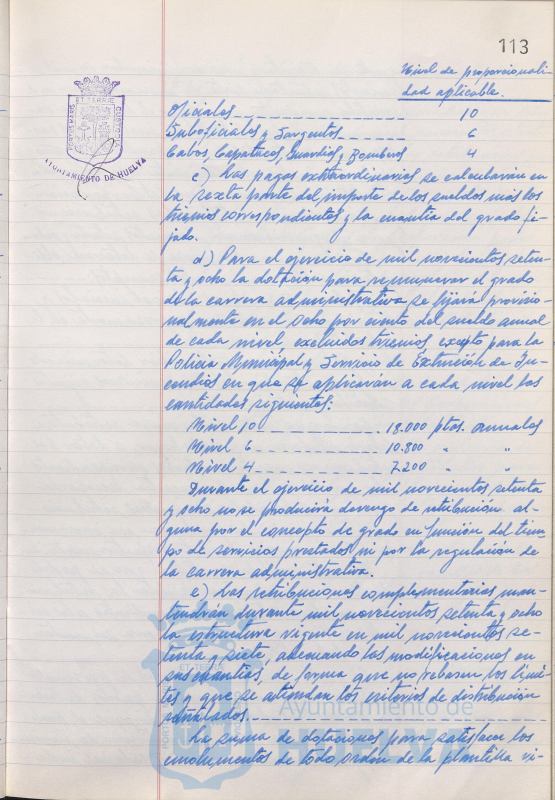 113
Nivel de proporcionali-
dad aplicable.
Oficiales ---------- 10
Suboficiales y Sargentos ------ 6
Cabos, Capataces, Guardias y Bomberos 4
PORTUS MARIS ET TERRAE CUSTODIA
AYUNTAMIENTO DE HUELVA
c) Las pagas extraordinarias se calcularán en
la sexta parte del importe de los sueldos más los
trienios correspondientes y la cuantía del grado fi-
jado.
d) Para el ejercicio de mil novecientos seten-
ta y ocho la dotación para remunerar el grado
de la carrera administrativa se fijará provisio-
nalmente en el ocho por ciento del sueldo anual
de cada nivel, excluidos trienios, excepto para la
Policía Municipal y Servicio de Extinción de In-
cendios en que se aplicarán a cada nivel las
cantidades siguientes:
Nivel 10 ---------- 18.000 ptas. anuales
Nivel 6 ---------- 10.800 " "
Nivel 4 ---------- 7.200 " "
Durante el ejercicio de mil novecientos setenta
y ocho no se producirá devengo de retribución al-
guna por el concepto de grado en función del tiem-
po de servicios prestados ni por la regulación de
la carrera administrativa.
e) Las retribuciones complementarias man-
tendrán durante mil novecientos setenta y ocho
la estructura vigente en mil novecientos se-
tenta y siete, adecuando las modificaciones en
sus cuantías, de forma que no rebasen los lími-
tes y que se atiendan los criterios de distribución
señalados. ----------
La suma de dotaciones para satisfacer los
emolumentos de todo orden de la plantilla vi-
Ayuntamiento de
HUELVA